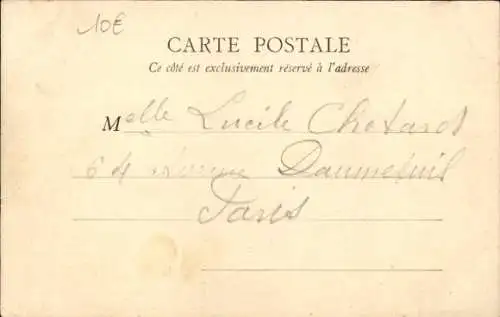 10€
CARTE POSTALE
Ce côté est exclusivement réservé à l'adresse
Melle Lucile Chotard
64 Avenue Daumesnil
Paris